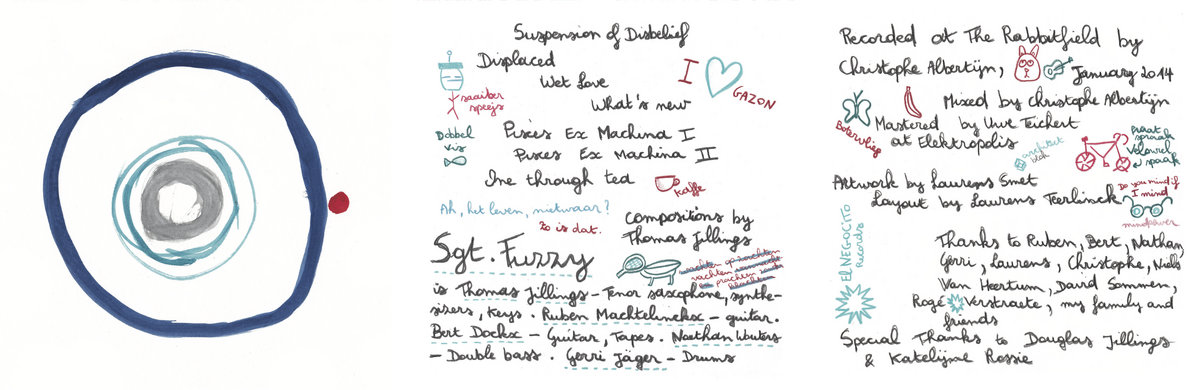 Suspension of Disbelief
Displaced
Wet Love
What's new
I
GAZON
saaiber
speejs
Dobbel
vis
Pisces Ex Machina I
Pisces Ex Machina II
Ine through ted
Kaffe
Ah, het leven, nietwaar?
Zo is dat.
Compositions by
Thomas Jillings
Sgt. Fuzzy
wachten op zachten
vachten
prachten
is Thomas Jillings – Tenor saxophone, synthe-
sisers, Keys. Ruben Machtelinckx – guitar.
Bert Dockx – Guitar, Tapes. Nathan Wouters
– Double bass. Gerri Jäger – Drums
Recorded at The Rabbitfield by
Christophe Albertijn,
January 2014
Mixed by Christophe Albertijn
Botervlieg
Mastered by Uwe Teichert
at Elektropolis
architect
blok
Praat
spraak
Velowiel
spaak
Artwork by Laurens Smet
Layout by Laurens Teerlinck
Do you mind if
I mind
mindpower
EL NEGOCITO
Records
Thanks to Ruben, Bert, Nathan,
Gerri, Laurens, Christophe, Niels
Van Heertum, David Sammen,
Rogé Verstraete, my family and
friends
Special Thanks to Douglas Jillings
& Katelijne Rossie